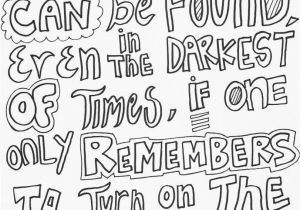 CAN be FOUND,
EVEN in THE DARKEST
OF TIMES, iF ONE
ONLY REMEMBERS
TO TURN ON THE